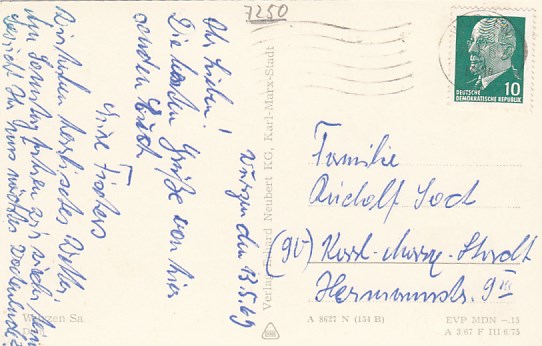 7250
Ihr Lieben!
Wurzen den 13.5.69
Die besten Grüße von hier
senden Euch
Eure Fischers
Wir haben herrliches Wetter.
Am Sonntag fahren wir wieder heim
Besucht Ihr uns nächstes Wochenende?
Verlag Erhard Neubert KG, Karl-Marx-Stadt
10
DEUTSCHE
DEMOKRATISCHE REPUBLIK
Familie
Rudolf
(90) Karl-Marx-Stadt
Hermannstr. 9
Wurzen Sa.
A 8627 N (154 B)
EVP MDN -.15
A 3/67 F III 6/75